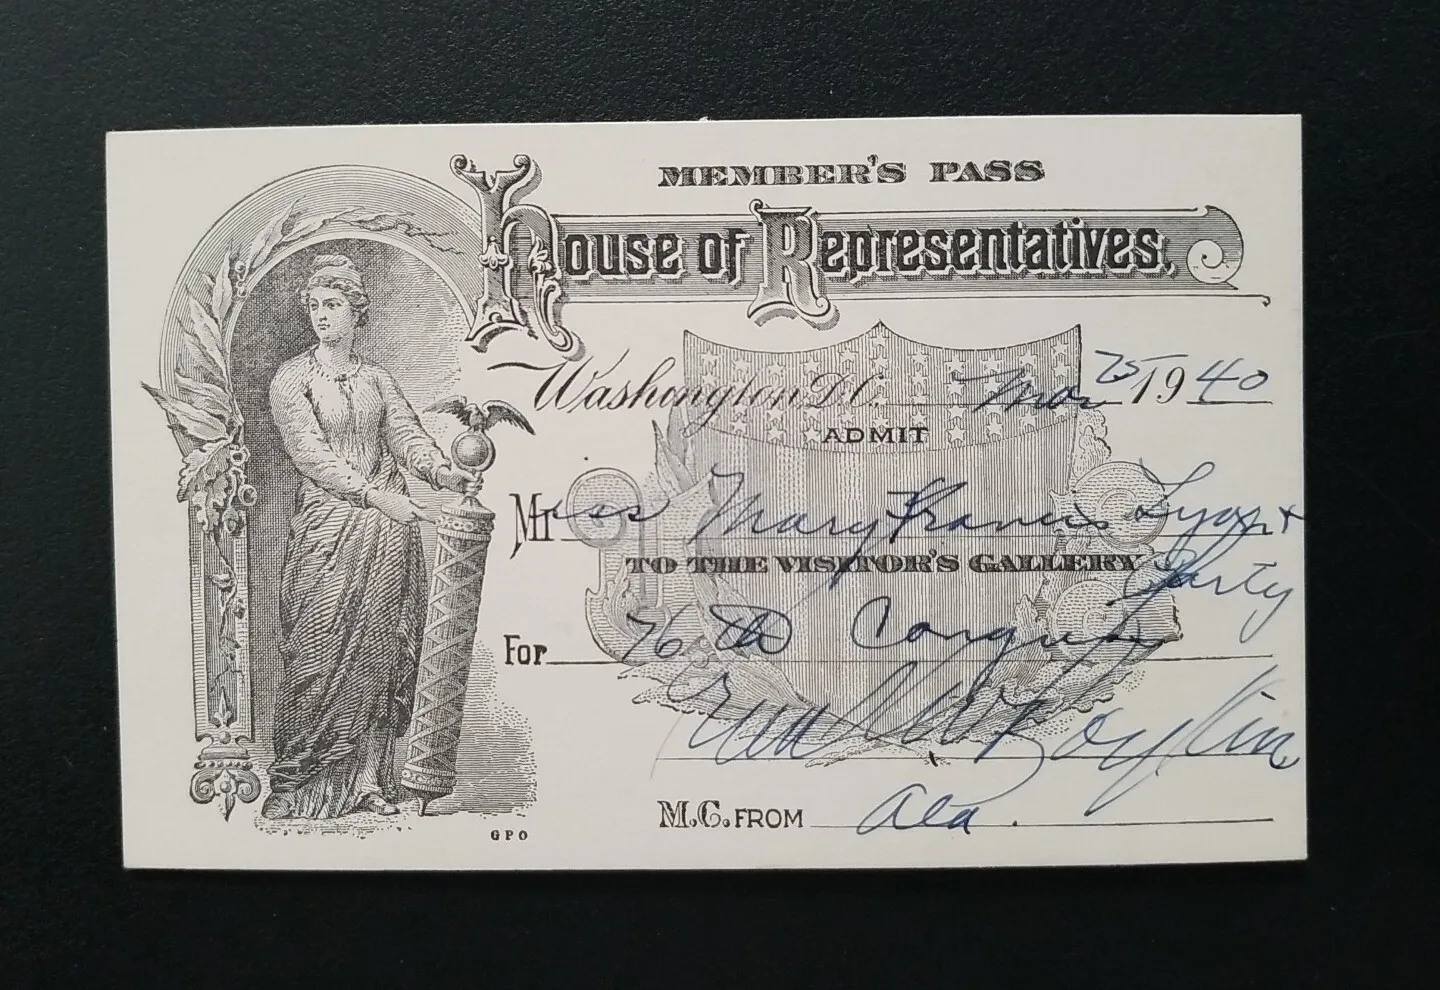 MEMBER'S PASS
House of Representatives,
Washington D.C. Mar 25 1940
ADMIT
Mriss Mary Francis Lyon +
TO THE VISITOR'S GALLERY Party
For 76th Congress
Frank W. Boykin
M.C. FROM Ala.
GPO